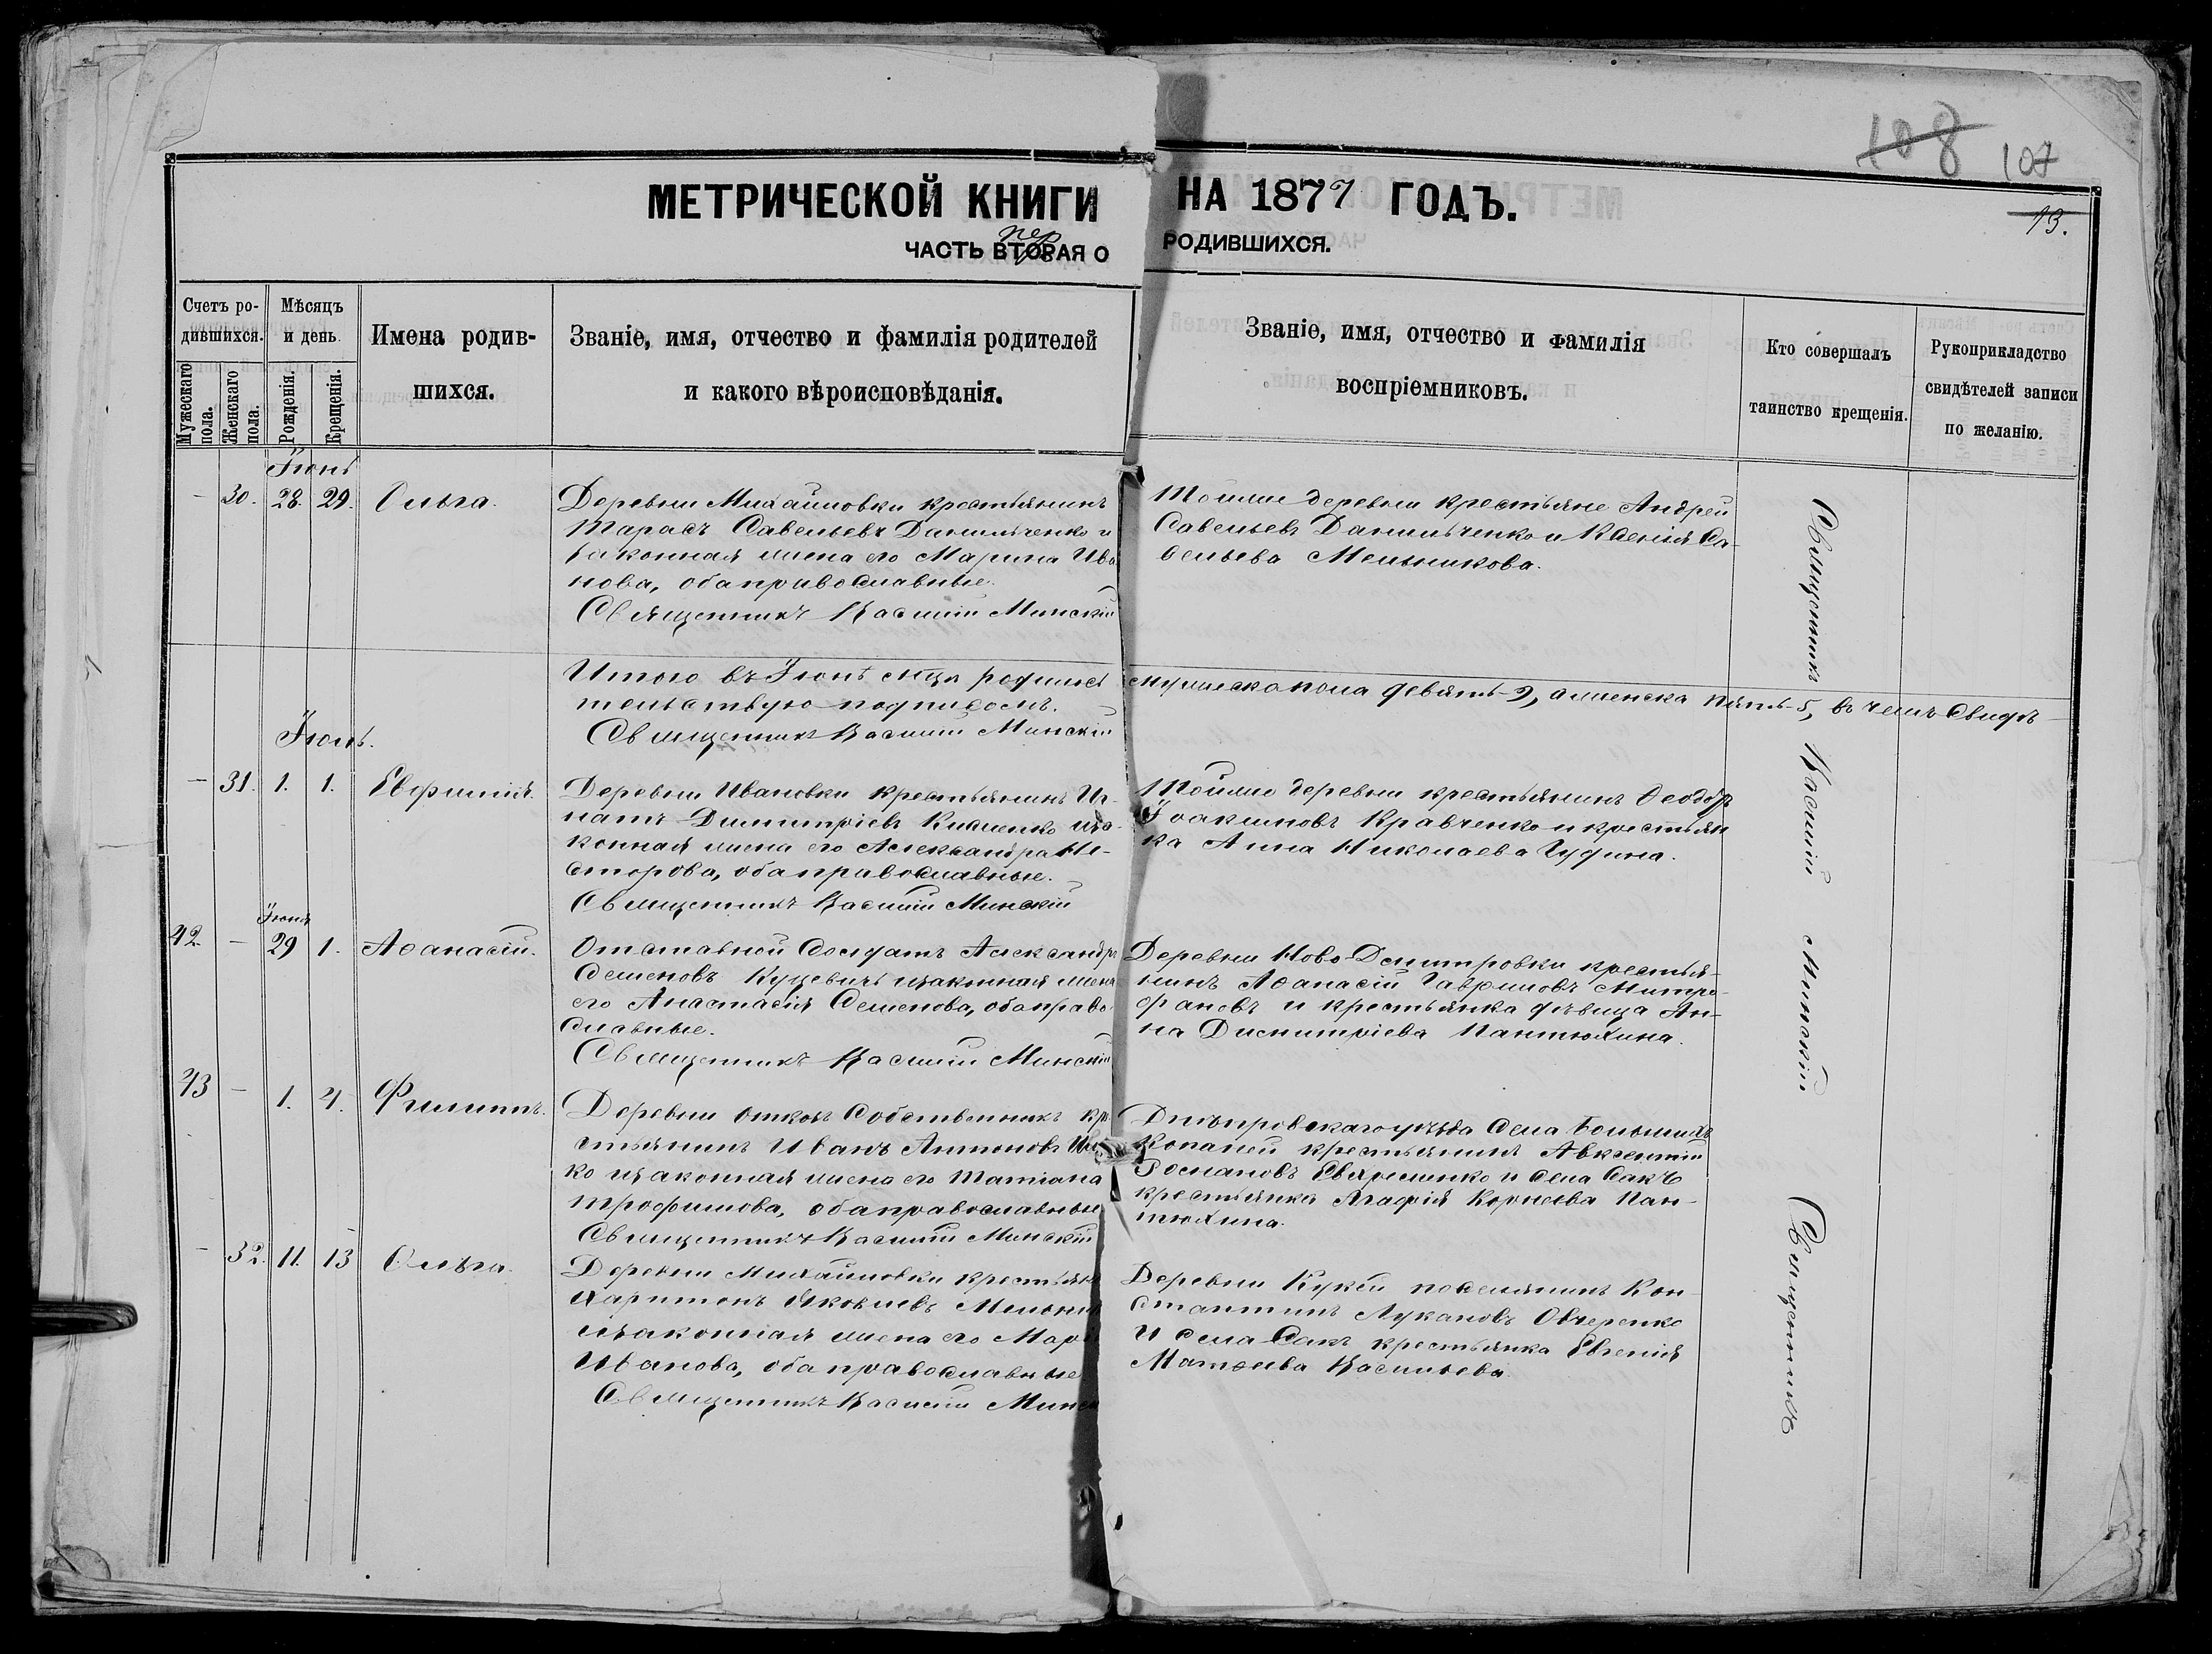 108 107
13.
МЕТРИЧЕСКОЙ КНИГИ НА 1877 ГОДЪ.
пер
ЧАСТЬ ВТОРАЯ О РОДИВШИХСЯ.
Счетъ ро-
дившихся.
Мужескаго пола.
Женскаго пола.
Мѣсяцъ
и день.
Рожденія.
Крещенія.
Имена родив-
шихся.
Званіе, имя, отчество и фамилія родителей
и какого вѣроисповѣданія.
Званіе, имя, отчество и фамилія
воспріемниковъ.
Кто совершалъ
таинство крещенія.
Рукоприкладство
свидѣтелей записи
по желанію.
Іюнь
- 30. 28. 29. Ольга.
Деревни Михайловки крестьянинъ
Тарасъ Савельевъ Данильченко и
законная жена его Марина Ива
нова, оба православные.
Священникъ Василій Минскій
Тойже деревни крестьяне Андрей
Савельевъ Данильченко и Ксенія Са-
вельева Мельникова.
Итого въ Іюнѣ мцѣ родилось мужеска пола девять-9, а женска пять-5, въ чемъ свидѣ-
тельствую подписомъ.
Священникъ Василій Минскій
Іюль.
- 31. 1. 1. Евфимія.
Деревни Ивановки крестьянинъ Иг-
натъ Димитріевъ Кидченко и за-
конная жена его Александра Не-
сторова, оба православные.
Священникъ Василій Минскій
Тойже деревни крестьянинъ Феодоръ
Іоакимовъ Кравченко и крестьян
ка Анна Николаева Чудина.
Іюня
42. - 29 1. Аѳанасій.
Отставной Солдатъ Александръ
Семеновъ Куцевичъ и законная жена
его Анастасія Семенова, оба право
славные.
Священникъ Василій Минскій
Деревни Ново-Дмитровки крестья-
нинъ Аѳанасій Гавриловъ Митро-
фановъ и крестьянка дѣвица Ан-
на Димитріева Пантюхина.
43 - 1. 4. Филиппъ.
Деревни собственникъ кре
стьянинъ Иванъ Антоновъ
ко и законная жена его Татіана
Трофимова, оба православные
Священникъ Василій Минскій
Днѣпровскаго уѣзда Села Большихъ
Копаней крестьянинъ Авксентій
Романовъ и села Сакъ
крестьянка Агафія Корнѣева Пан-
тюхина.
- 32. 11. 13 Ольга.
Деревни Михайловки крестьян
Харитонъ Яковлевъ Мельник
и законная жена его Марі
Иванова, оба православные
Священникъ Василій Минск
Деревни поселянинъ Кон-
стантинъ Лукановъ Овчеренко
и села Сакъ крестьянка Евгенія
Матѳеева Васильева.
Священникъ Василій Минскій
Священникъ